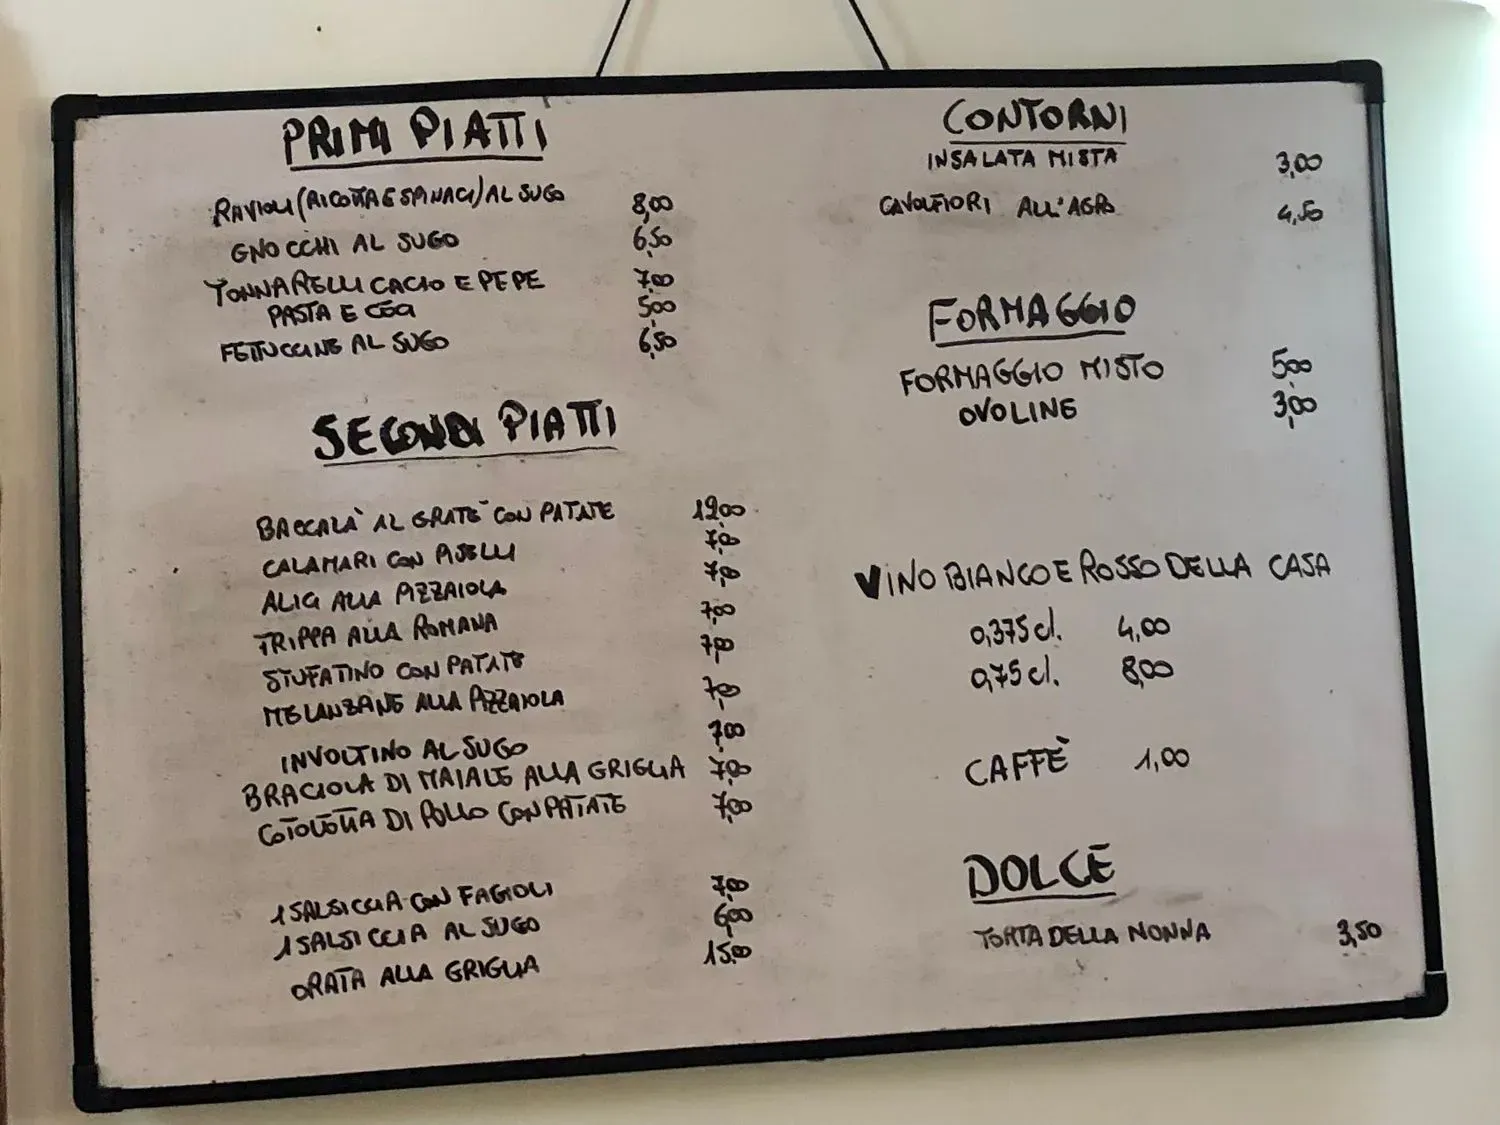 PRIMI PIATTI
RAVIOLI (RICOTTA E SPINACI) AL SUGO 8,00
GNOCCHI AL SUGO 6,50
TONNARELLI CACIO E PEPE 7,00
PASTA E CECI 5,00
FETTUCCINE AL SUGO 6,50
SECONDI PIATTI
BACCALÀ AL GRATÈ CON PATATE 12,00
CALAMARI CON PISELLI 7,00
ALICI ALLA PIZZAIOLA 7,00
TRIPPA ALLA ROMANA 7,00
STUFATINO CON PATATE 7,00
MELANZANE ALLA PIZZAIOLA 7,00
INVOLTINO AL SUGO 7,00
BRACIOLA DI MAIALE ALLA GRIGLIA 7,00
COTOLETTA DI POLLO CON PATATE 7,00
1 SALSICCIA CON FAGIOLI 7,00
1 SALSICCIA AL SUGO 6,00
ORATA ALLA GRIGLIA 15,00
CONTORNI
INSALATA MISTA 3,00
CAVOLFIORI ALL'AGRO 4,50
FORMAGGIO
FORMAGGIO MISTO 5,00
OVOLINE 3,00
VINO BIANCO E ROSSO DELLA CASA
0,375 cl. 4,00
0,75 cl. 8,00
CAFFÈ 1,00
DOLCE
TORTA DELLA NONNA 3,50